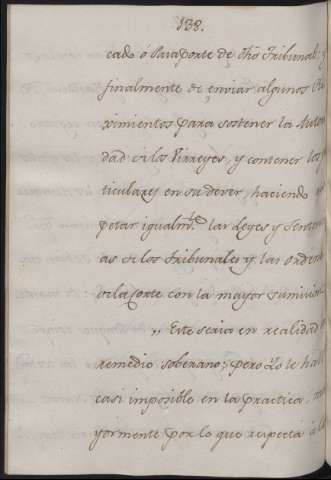 138.
cado ó Pasaporte de dho Tribunal: y
finalmente de enviar algunos Re
ximientos para sostener la Autori
dad de los Virreyes, y contener los par
ticulares en su dever, haciendo res
petar igualmte. las Leyes y Sentenci
as de los Tribunales y las ordenes
de la Corte con la mayor sumision.
,, Este seria en realidad el
remedio soberano; pero yo le hallo
casi imposible en la practica, ma
yormente por lo que respecta á los